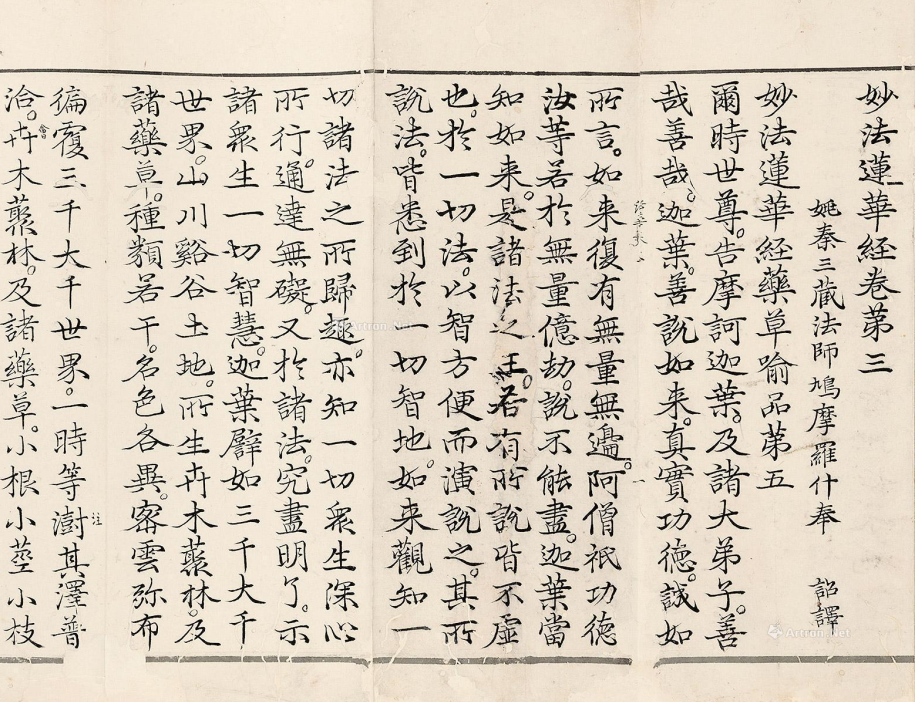 妙法蓮華経卷苐三
姚秦三藏法師鳩摩羅什奉 詔譯
妙法蓮華経藥草喻品苐五
爾時世尊。告摩訶迦葉。及諸大弟子。善
哉善哉。迦葉。善說如来。真實功徳。誠如
所言。如来復有無量無邊。阿僧祇功徳
汝等若於無量億劫。說不能盡。迦葉當
知如来。是諸法之王。若有所說皆不虛
也。於一切法。以智方便而演說之。其所
說法。皆悉到於一切智地。如来觀知一
切諸法之所歸趣。亦知一切衆生深心
所行。通達無礙。又於諸法。究盡明了。示
諸衆生一切智慧。迦葉譬如三千大千
世界。山川谿谷土地。所生卉木藂林。及
諸藥草。種類若干。名色各異。密雲弥布
徧覆三千大千世界。一時等澍其澤普
注
洽。卉木藂林。及諸藥草。小根小莖小枝
會
Artron.Net
Artron.Net